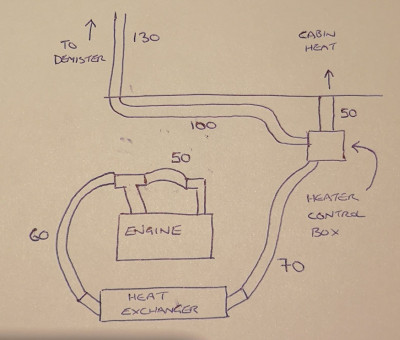 TO
DEMISTER
130
CABIN
HEAT
50
100
50
HEATER
CONTROL
BOX
60
ENGINE
70
HEAT
EXCHANGER